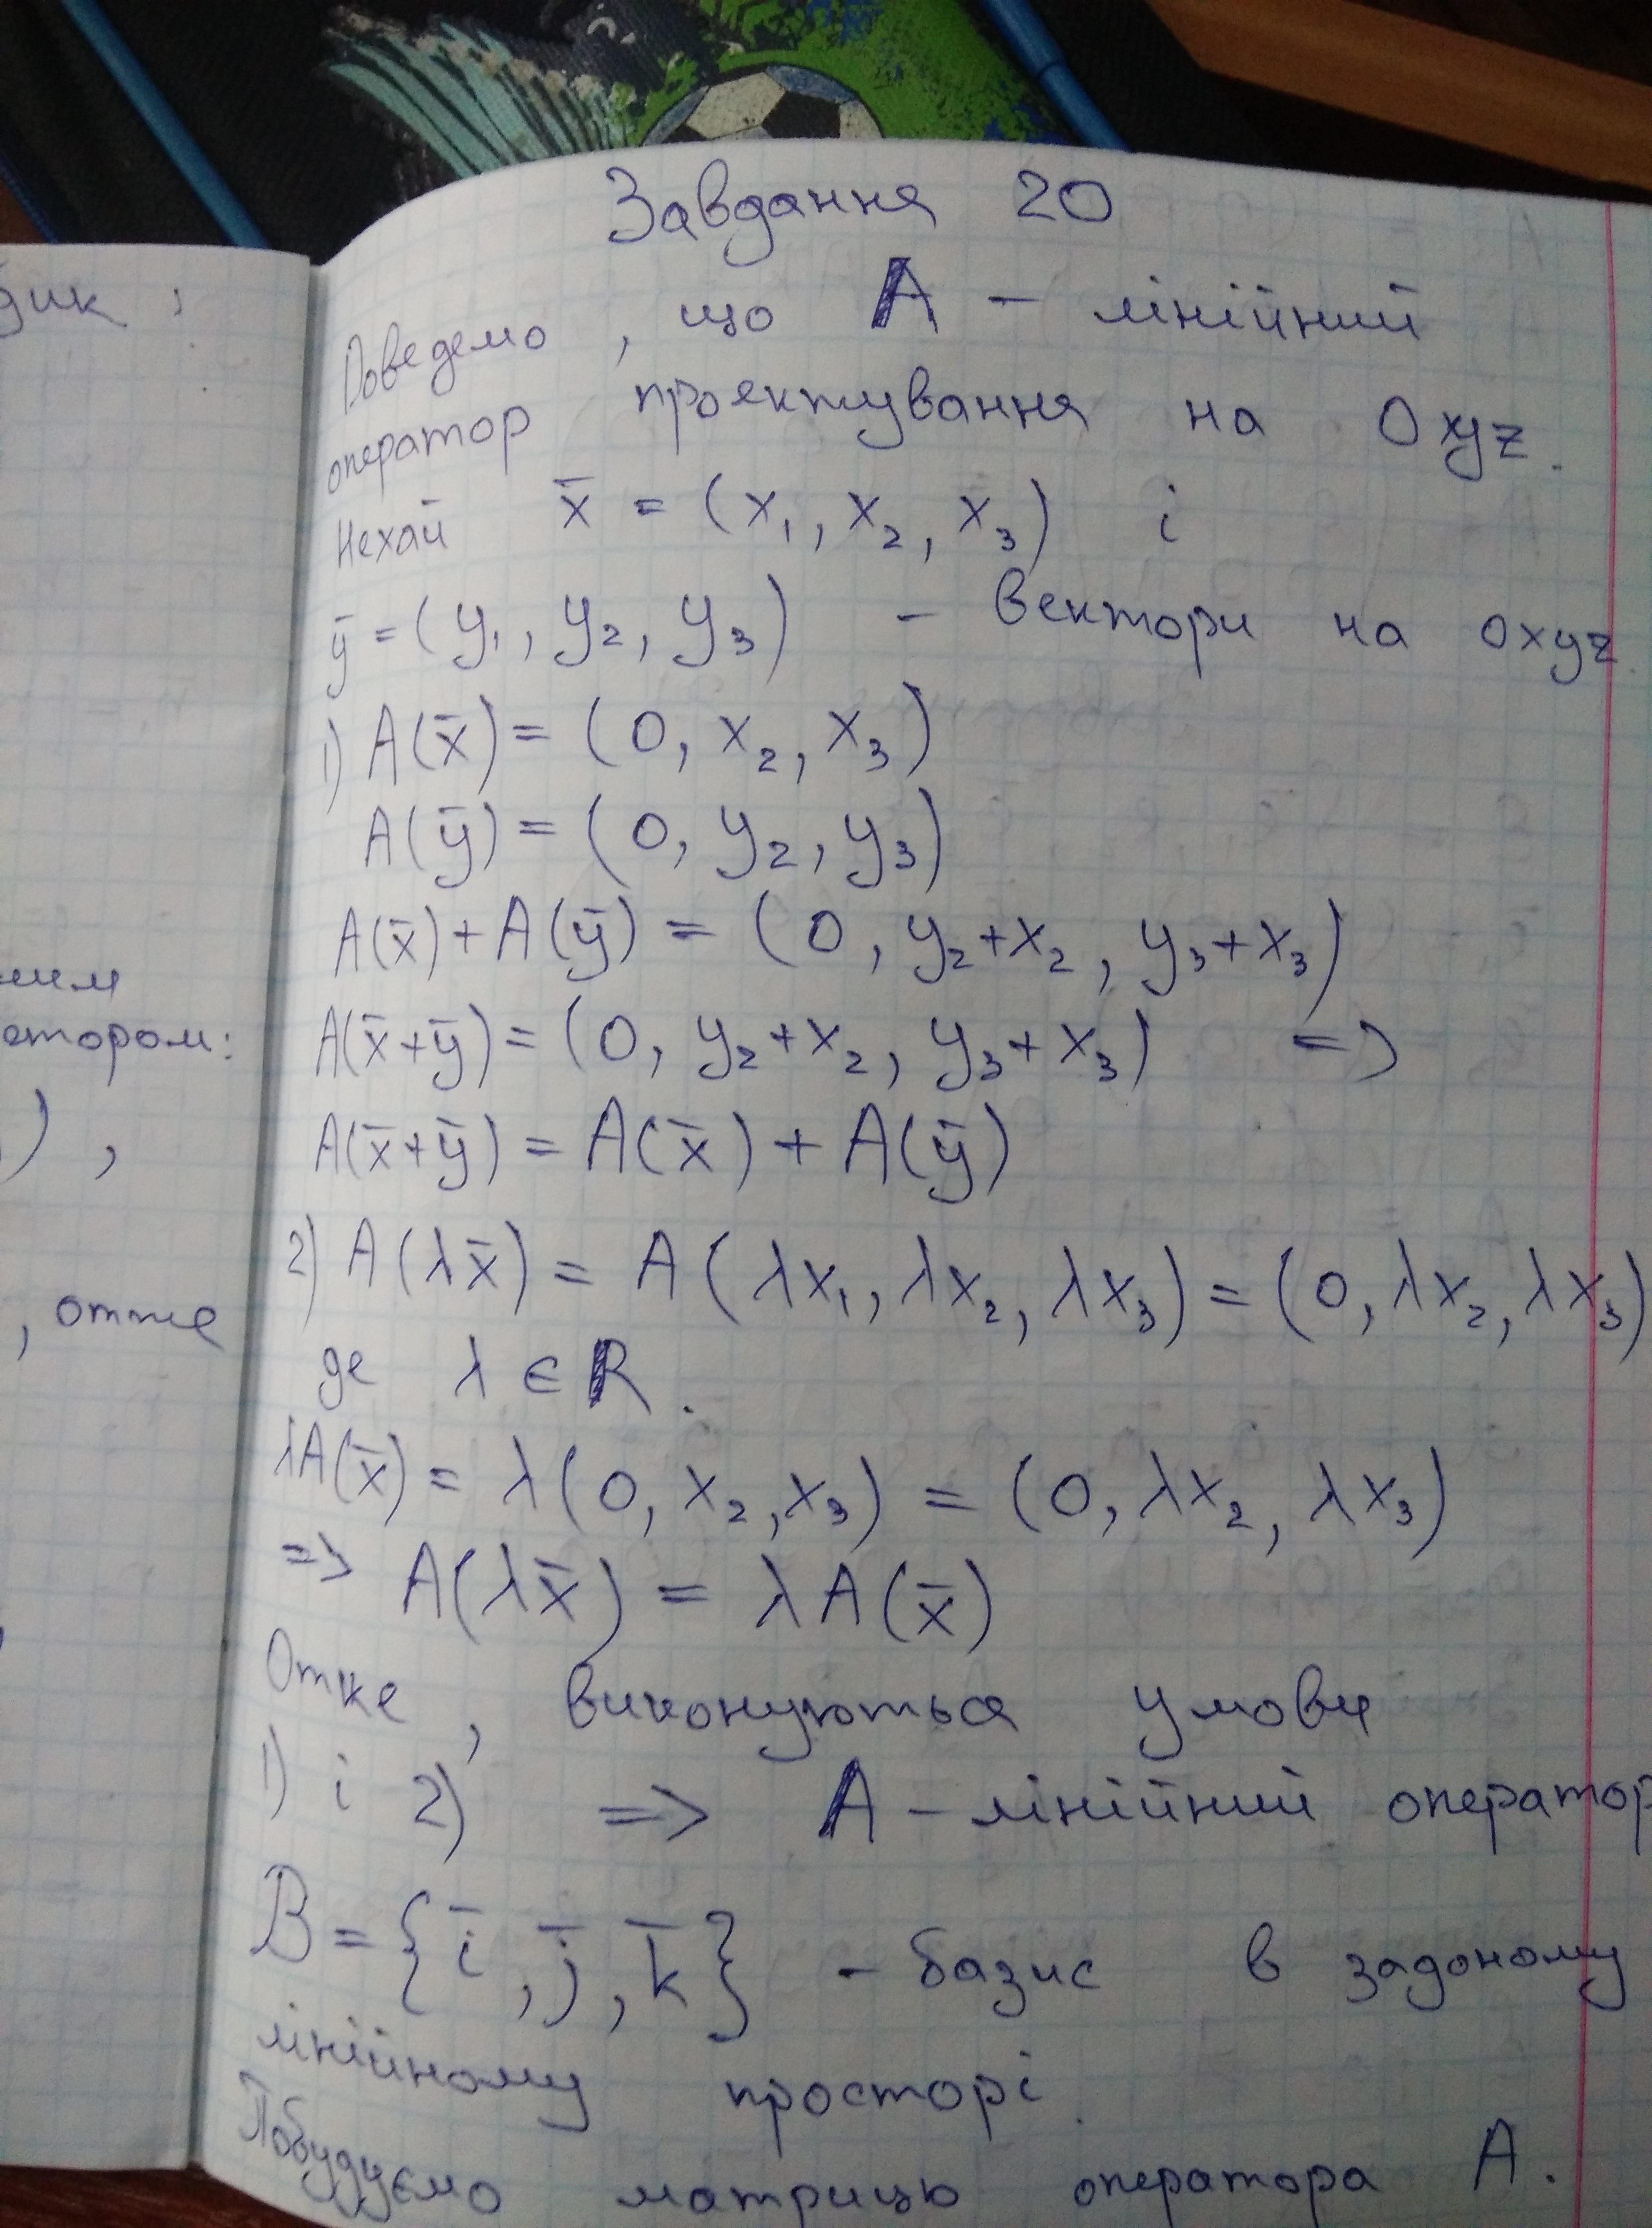 дик ;
ним
етором:
) ,
, отже
Завдання 20
Доведемо , що A – лінійний
оператор проектування на Oxyz.
Нехай x̄ = (x₁, x₂, x₃) і
ȳ = (y₁, y₂, y₃) – вектори на oxyz
1) A(x̄) = (0, x₂, x₃)
A(ȳ) = (0, y₂, y₃)
A(x̄) + A(ȳ) = (0, y₂+x₂, y₃+x₃)
A(x̄+ȳ) = (0, y₂+x₂, y₃+x₃) =>
A(x̄+ȳ) = A(x̄) + A(ȳ)
2) A(λx̄) = A(λx₁, λx₂, λx₃) = (0, λx₂, λx₃)
де λ ∈ R.
λA(x̄) = λ(0, x₂, x₃) = (0, λx₂, λx₃)
=> A(λx̄) = λA(x̄)
Отже , виконуються умови
1) і 2) => A – лінійний оператор
B = {ī, j̄, k̄} – базис в задоному
лінійному просторі.
Побудуємо матрицю оператора A.